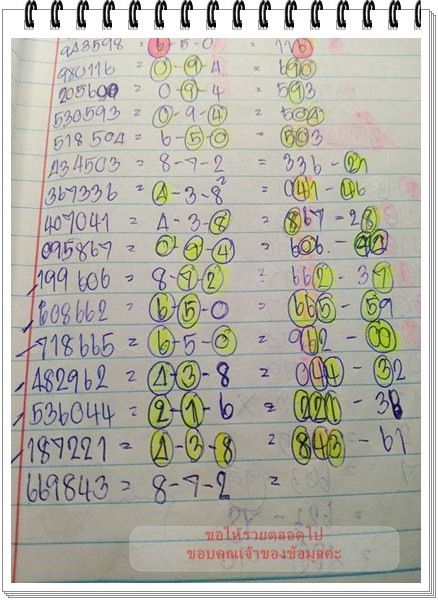 943598 = 6-5-0 = 116
980116 = 0-9-4 = 690
205690 = 0-9-4 = 593
530593 = 0-9-4 = 504
518504 = 6-5-0 = 503
434503 = 8-7-2 = 336-21
367336 = 4-3-8 = 041-46
407041 = 4-3-8 = 867-28
095867 = 0-9-4 = 606-90
199606 = 8-7-2 = 662-37
608662 = 6-5-0 = 665-59
718665 = 6-5-0 = 962-00
482962 = 4-3-8 = 044-32
536044 = 2-1-6 = 221-38
187221 = 4-3-8 = 843-61
669843 = 8-7-2 =
ขอให้รวยตลอดไป
ขอบคุณเจ้าของข้อมูลค่ะ